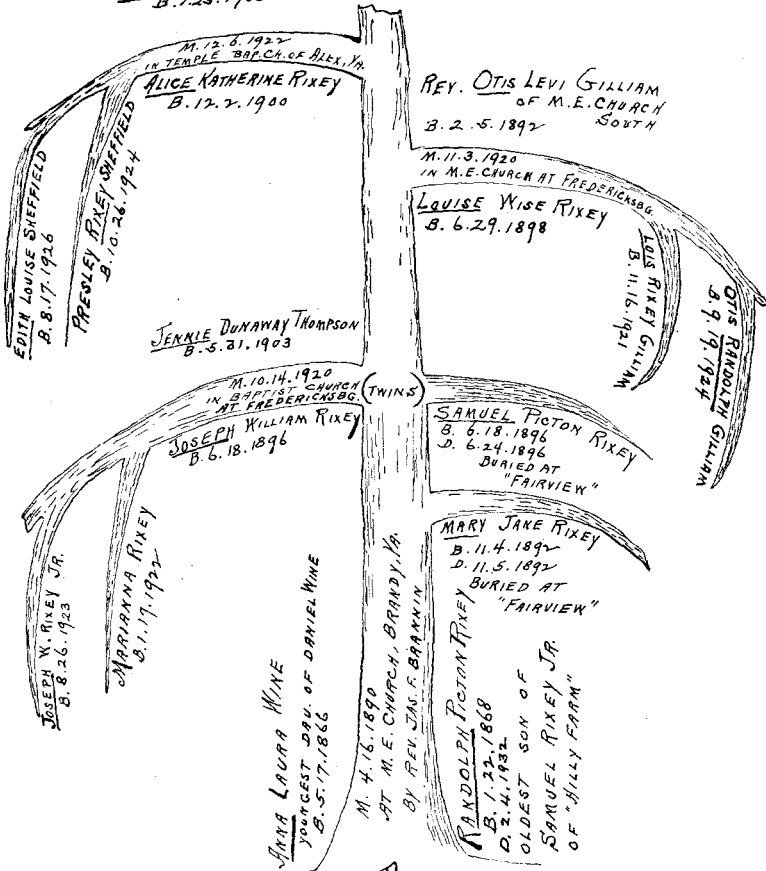 M. 12. 6. 1922
IN TEMPLE BAP. CH. OF ALEX, VA.
ALICE KATHERINE RIXEY
B. 12. 2. 1900
EDITH LOUISE SHEFFIELD
B. 8. 17. 1926
PRESLEY RIXEY SHEFFIELD
B. 10. 26. 1924
REV. OTIS LEVI GILLIAM
OF M.E. CHURCH
SOUTH
B. 2. 5. 1892
M. 11. 3. 1920
IN M.E. CHURCH AT FREDERICKSBG.
LOUISE WISE RIXEY
B. 6. 29. 1898
LOIS RIXEY GILLIAM
B. 11. 16. 1921
OTIS RANDOLPH GILLIAM
B. 9. 19. 1924
JENNIE DUNAWAY THOMPSON
B. 5. 31. 1903
M. 10. 14. 1920
IN BAPTIST CHURCH
AT FREDERICKSBG.
(TWINS)
JOSEPH WILLIAM RIXEY
B. 6. 18. 1896
SAMUEL PICTON RIXEY
B. 6. 18. 1896
D. 6. 24. 1896
BURIED AT
"FAIRVIEW"
MARY JANE RIXEY
B. 11. 4. 1892
D. 11. 5. 1892
BURIED AT
"FAIRVIEW"
JOSEPH W. RIXEY JR.
B. 8. 26. 1923
MARIANNA RIXEY
B. 1. 19. 1922
ANNA LAURA WINE
YOUNGEST DAU. OF DANIEL WINE
B. 5. 17. 1866
M. 4. 16. 1890
AT M.E. CHURCH, BRANDY, VA.
BY REV. JAS. F. BRANNIN
RANDOLPH PICTON RIXEY
B. 1. 22. 1868
D. 2. 4. 1932
OLDEST SON OF
SAMUEL RIXEY JR.
OF "HILLY FARM"